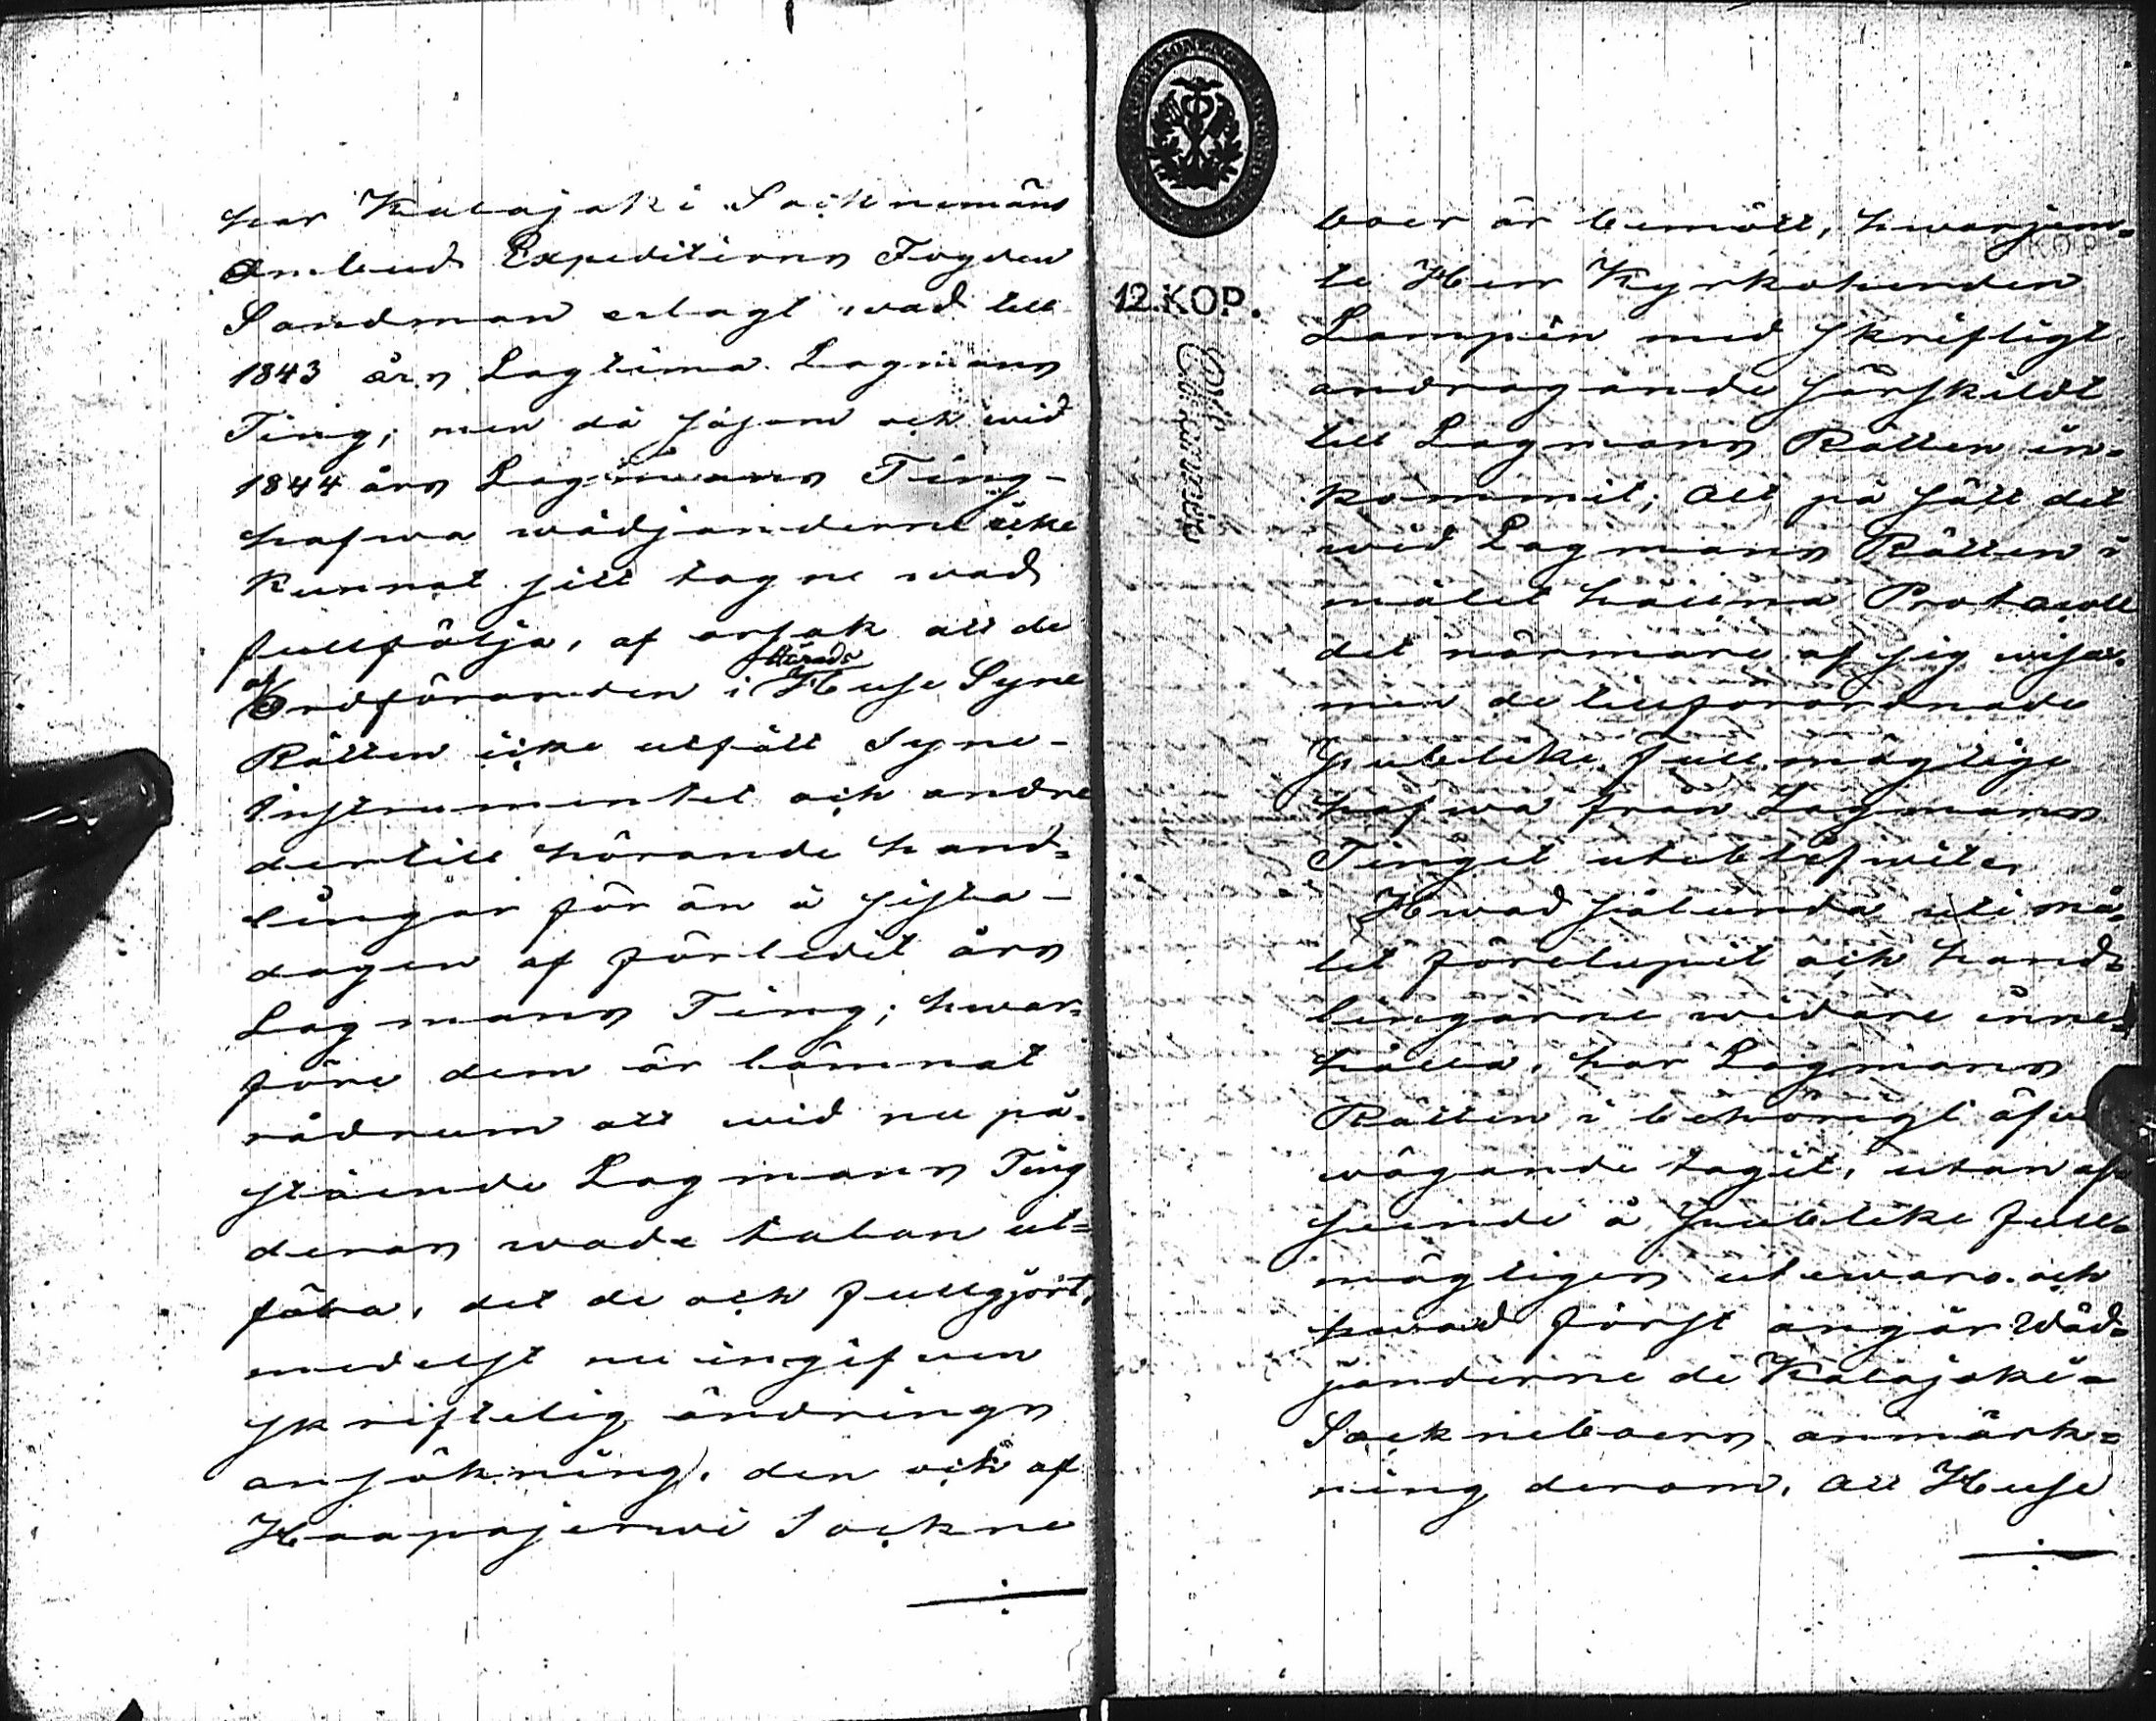 har Kalajoki Socknemäns
Ombud Expeditions Fogden
Sandman erlagt wad till
1843 års Lagtima Lagmans
Ting; men då såsom och wid
1844 års Lagmans Ting
hafwa wädjanderne icke
kunnat sitt tagne wad
fullfölja, af orsak att de
af Ordföranden i Härads Huse Syne
Rätten icke utfått Syne-
Instrumentet och andre
dertill hörande hand=
lingar för än å sista
dagen af förledit års
Lagmans Ting; hwar=
före dem är lämnat
rådrum att wid nu på=
stående Lagmans Ting
deras wade talan ut=
föra, det de och fullgjort,
medelst nu ingifwen
skriftelig ändrings
ansökning, den och af
Haapajerwi Sockne
12.KOP.
boer är bemött, hwarjem=
te Herr Kyrkoherden
Lampén med skriftligt
andragande särskildt
till Lagmans Rätten in=
kommit; Allt på sätt det
wid Lagmans Rätten i
målet hållna Protocoll
det närmare af sig wisar.
men de tillförordnade
publike Fullmägtige
hafwa från Lagmans
Tinget uteblifwit.
Hwad sålunda uti må=
let förelupit och hand=
lingarne widare inne=
hålla, har Lagmans
Rätten i behörigt öfwer
wägande tagit, utan af=
seende å publike full=
mägtiges utewaro. och
hwad först angår Wäd=
janderne de Kalajoki
Sockneboers anmärk=
ning derom, att Huse